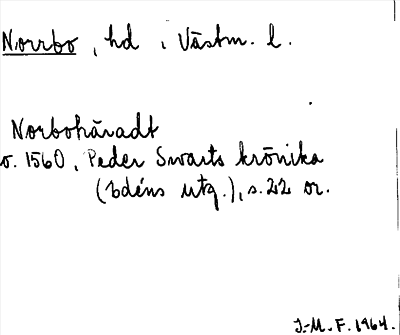 Norrbo, hd i Västm. l.
Norbohäradt
o. 1560, Peder Swarts krönika
(Edéns utg.), s. 22 or.
J.-M. F. 1964.